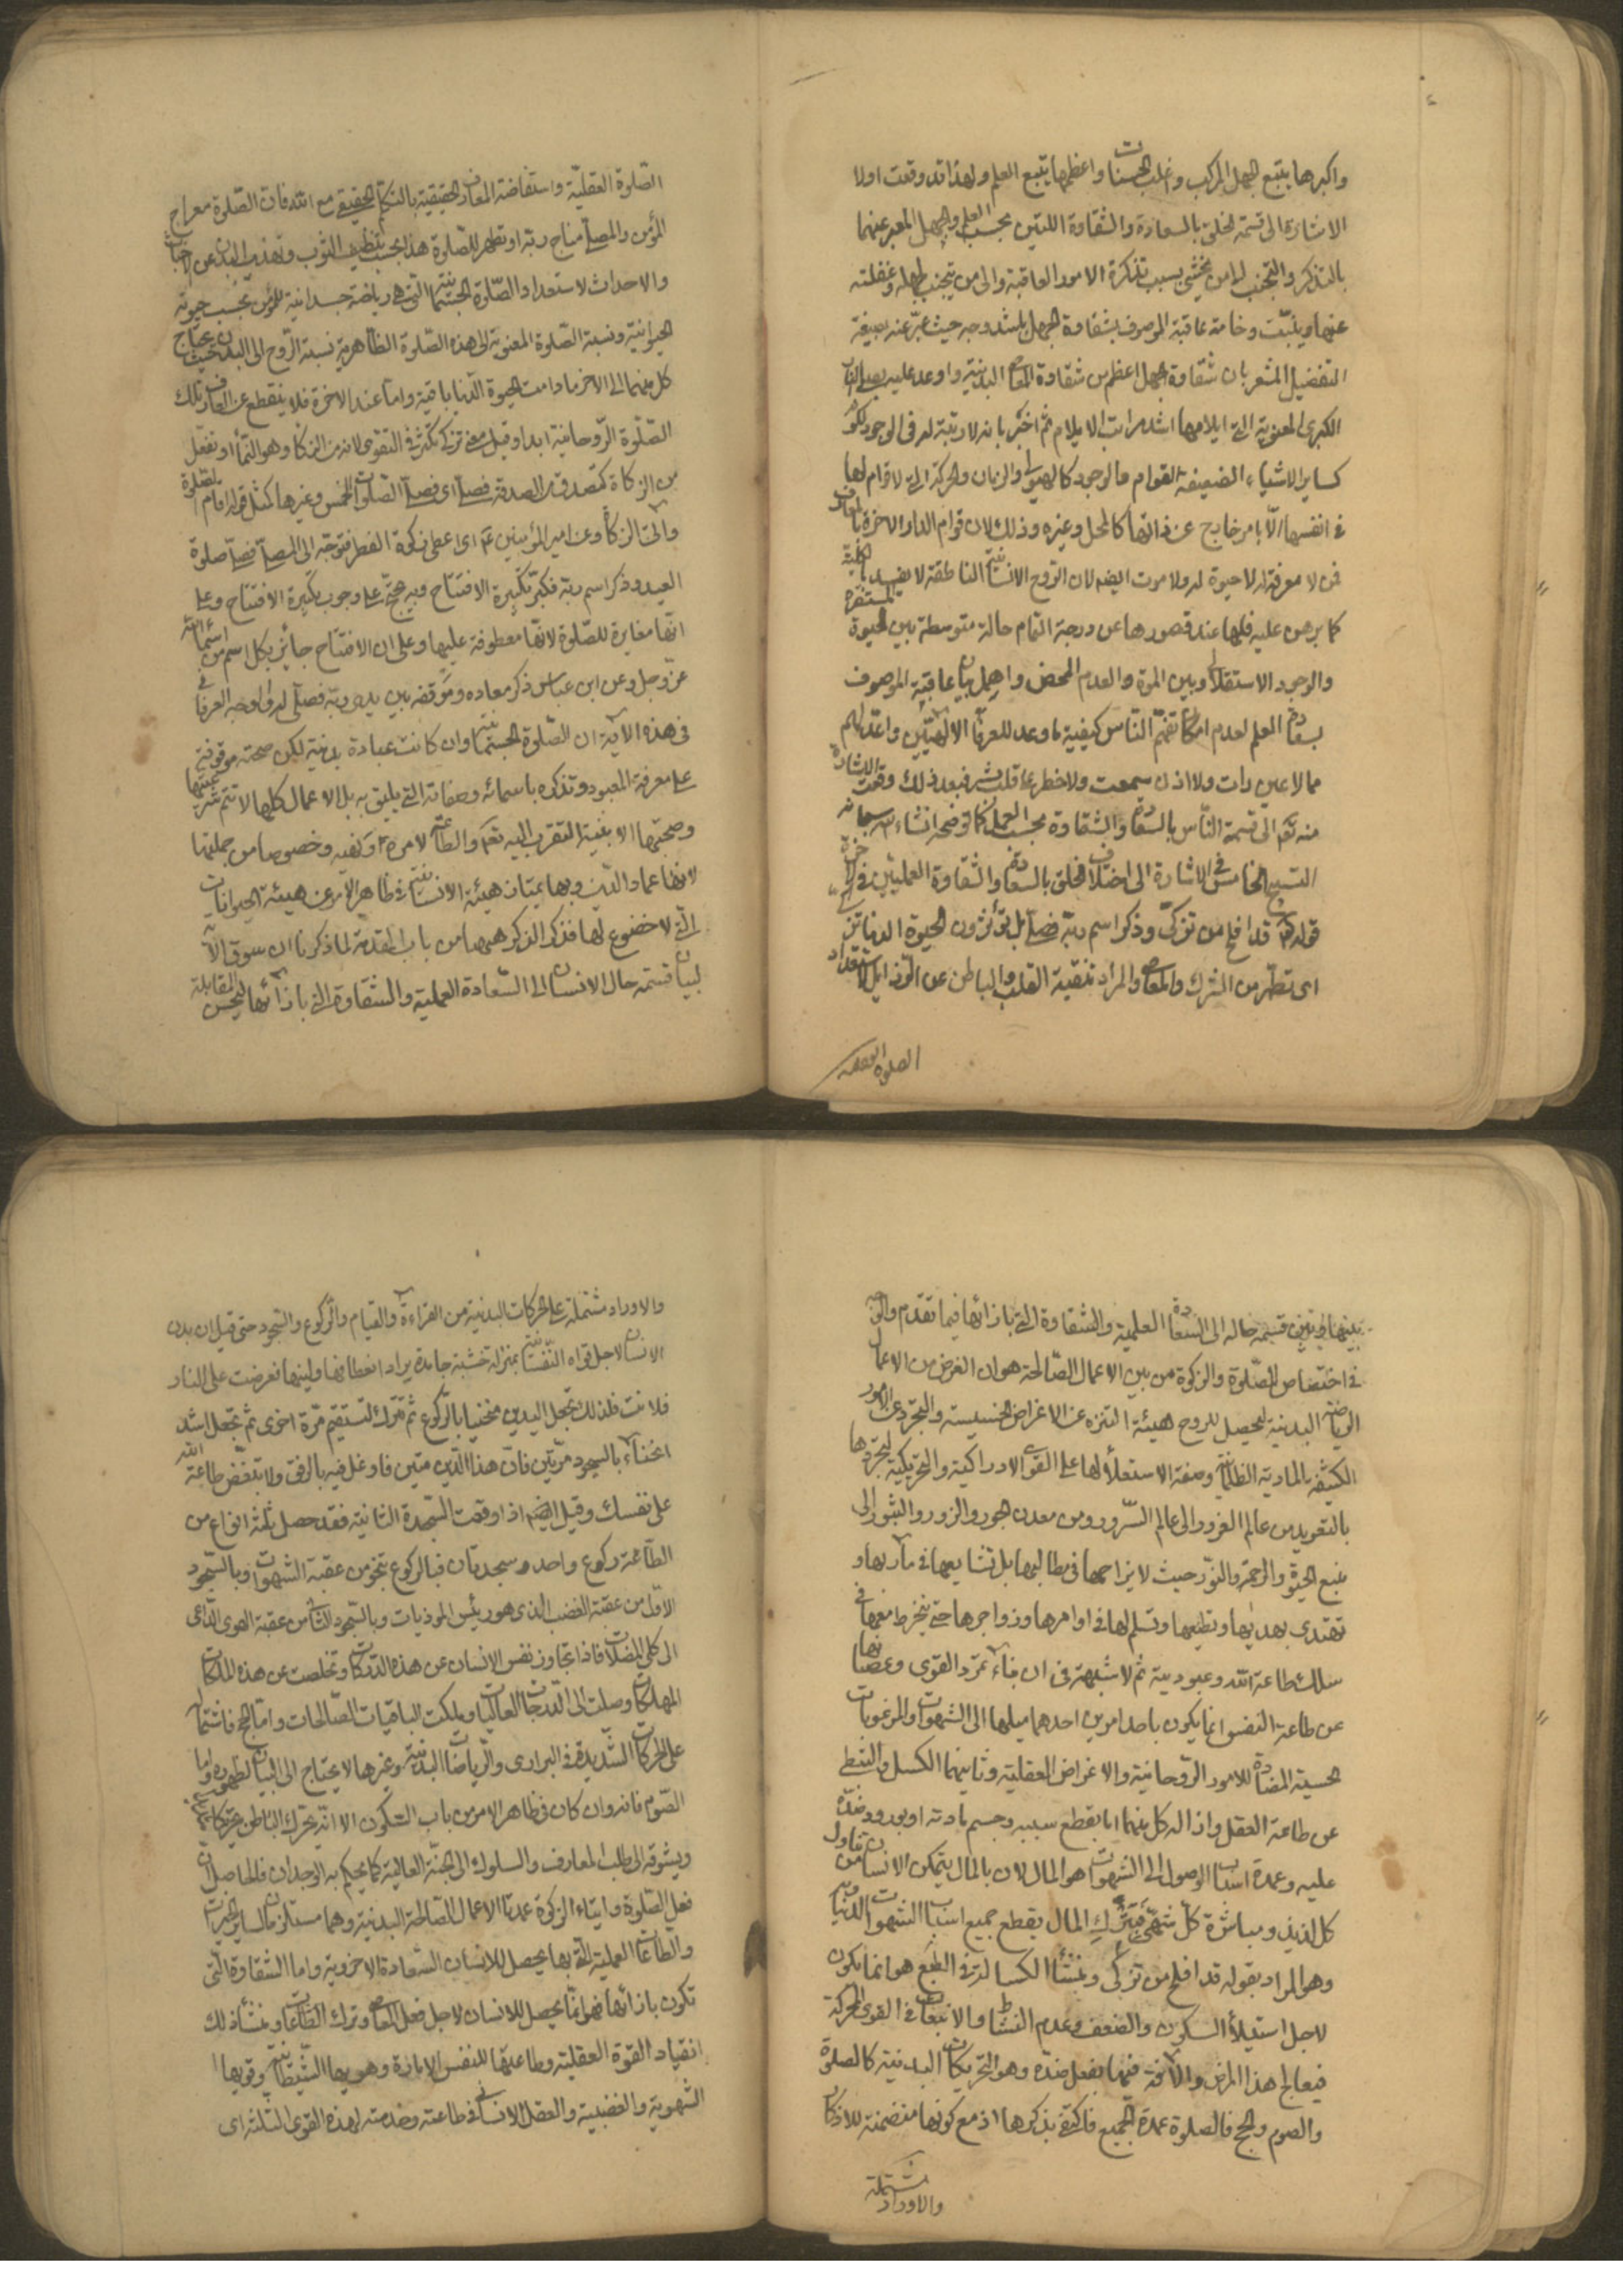 واكبرها يتبع الجهل المركب واغلب الحسنات واعظمها يتبع العلم ولهذا قد وقعت اولا
الاشارة الى قسمة الخلق بالسعادة والشقاوة اللتين بحسب العلم والجهل المعبر عنهما
بالتذكر والتجنب لها من يخشى بسبب تذكرة الامور العاقبة والى من يتجنب لجهله وغفلته
عنها ويثبت وخامة عاقبة الموصوف بشقاوة الجهل باشد وجه حيث عبر عنه بصيغة
التفضيل المشعر بان شقاوة الجهل اعظم من شقاوة المعاصي البدنية واوعد عليه بصلى النار
الكبرى المعنوية التى ايلامها اشد مراتب الايلام ثم اخبر بانه لا رتبة له فى الوجود لكونه
كساير الاشياء الضعيفة القوام والوجود كالهيولى والزمان والحركة التى لا قوام لها
فى انفسها الا بامر خارج عن ذاتها كالمحل وغيره وذلك لان قوام الدار الاخرة بالمعارف
فمن لا معرفة له لا حيوة له ولا موت ايضا لان الروح الانسانية الناطقة لا يفسد بالكلية
كما برهن عليه فلها عند قصورها عن درجة التمام حالة متوسطة بين الحيوة المستقرة
والوجود الاستقلالى وبين الموت والعدم المحض واهمل بيان عاقبة الموصوف
بسعادة العلم لعدم امكان تفهم الناس كيفية ما وعد للعرفاء الالهيين واعد لهم
مما لا عين رات ولا اذن سمعت ولا خطر على قلب بشر فبعد ذلك وقعت الاشارة
منه تعالى الى قسمة الناس بالسعادة والشقاوة بحسب العمل كما نوضحه انشاء الله سبحانه
التسبيح الخامس فى الاشارة الى اختلاف الخلق بالسعادة والشقاوة العمليتين فى الآخرة
قوله تعالى قد افلح من تزكى وذكر اسم ربه فصلى بل تؤثرون الحيوة الدنيا تزكى
اى تطهر من الشرك والمعاصي والمراد تنقية القلب والباطن عن الرذايل لاستعداد
الصلوة العقلية
الصلوة العقلية واستفاضة المعارف الحقيقية بالتكلم الحقيقي مع الله فان الصلوة معراج
المؤمن والمصلى مناج ربه او تطهر للصلوة هذا بحسب تنظيف الثوب وتهذيب البدن عن الاخباث
والاحداث لاستعداد الصلوة الجسمانية التى هى رياضة جسدانية للمؤمن بحسب حيوته
الحيوانية ونسبة الصلوة المعنوية الى هذه الصلوة الظاهرية نسبة الروح الى البدن حيث يحتاج
كل منهما الى الاخر ما دامت الحيوة الدنيا باقية واما عند الاخرة فلا ينقطع عن العارف تلك
الصلوة الروحانية ابدا وقيل معنى تزكى تكثر فى التقوى لانه من الزكاء وهو النماء او تفعل
من الزكاة كتصدق من الصدقة فصلى اى فصلى الصلوات الخمس وغيرها كمثل قوله اقام الصلوة
واتى الزكاة وعن امير المؤمنين ع اى اعطى زكوة الفطر فتوجه الى المصلى فصلى صلوة
العيد وذكر اسم ربه فكبر تكبيرة الافتتاح وبه يحتج على وجوب تكبيرة الافتتاح وعلى
انها مغايرة للصلوة لانها معطوفة عليها وعلى ان الافتتاح جائز بكل اسم من اسمائه
عز وجل وعن ابن عباس ذكر معاده وموقفه بين يدى ربه فصلى له والوجه العرفانى
فى هذه الآية ان الصلوة الجسمانية وان كانت عبادة بدنية لكن صحته موقوفة
على معرفة المعبود وتذكره باسمائه وصفاته التى يليق به بل الاعمال كلها لا تتم شرعيتها
وصحتها الا بنية التقرب اليه تعالى والطاعة لامره ونهيه وخصوصا من جملتها
لانها عماد الدين وبها يمتاز هيئة الانسانية فى ظاهر الامر عن هيئة الحيوانات
التى لا خضوع لها فذكر الذكر ههنا من باب المقدمة لما ذكرنا ان سوق الآية
لبيان قسمة حال الانسان الى السعادة العملية والشقاوة التى بازائها ليحسن المقابلة
بينها وبين قسمة حاله الى السعادة العلمية والشقاوة التى بازائها فيما تقدم والوجه
فى اختصاص الصلوة والزكوة من بين الاعمال الصالحة هو ان الغرض من الاعمال
الرياضة البدنية لتحصيل للروح هيئة التنزه عن الاغراض الخسيسة والتجرد عن الامور
الكثيفة المادية الظلمانية وصفة الاستعلاء لها على القوى الادراكية والتحريكية لتجردها
بالتعويد من عالم الغرور الى عالم السرور ومن معدن الجور والزور والشرور الى
منبع الحيوة والرحمة والنور حيث لا يزاحمها فى مطالبها بل تشايعها فى مآربها و
تقتدى بهديها وتطيعها وتسلم لها فى اوامرها وزواجرها حتى ينخرط معها فى
سلك طاعة الله وعبوديته ثم لا شبهة فى ان منشاء تمرد القوى وعصيانها
عن طاعة النفس انما يكون باحد امرين احدهما ميلها الى الشهوات والمرغوبات
الحسية المضادة للامور الروحانية والاغراض العقلية وثانيهما الكسل والتثبط
عن طاعة العقل وازالة كل منهما اما بقطع سببه وحسم مادته او بورود ضده
عليه وعمدة اسباب الوصول الى الشهوات هو المال لان بالمال يتمكن الانسان من تناول
كل لذيذ ومباشرة كل شهى فبترك المال يقطع جميع اسباب الشهوات الدنياوية
وهو المراد بقوله قد افلح من تزكى ومنشأ الكسالة فى الطبع هو انما يكون
لاجل استيلاء السكون والضعف وعدم النشاط والانبعاث فى القوى المحركة
فيعالج هذا المرض والآفة فيها بفعل ضده وهو التحريكات البدنية كالصلوة
والصوم والحج فالصلوة عمدة الجميع فاكتفى بذكرها اذ مع كونها متضمنة للاذكار
والاوراد مشتملة
والاوراد مشتملة على الحركات البدنية من القراءة والقيام والركوع والسجود حتى قيل ان بدن
الانسان لاجل قواه النفسانية بمنزلة خشبة جامدة يراد انعطافها ولينها فعرضت على النار
فلانت فلذلك تجعل اليدين منحنيا بالركوع ثم تترك لتستقيم مرة اخرى ثم تجعل اشد
انحناء بالسجود مرتين فان هذا الدين متين فاوغل فيه بالرفق ولا تبغض طاعة الله
على نفسك وقيل ايضا اذا وقعت السجدة الثانية فقد حصل ثلثة انواع من
الطاعة ركوع واحد وسجدتان فبالركوع ينجو من عقبة الشهوات وبالسجود
الاول من عقبة الغضب الذى هو رئيس الموذيات وبالسجود الثانى من عقبة الهوى الداعى
الى كل المضلات فاذا تجاوز نفس الانسان عن هذه الدركات وتخلصت عن هذه الملكات
المهلكات وصلت الى الدرجات العاليات وملكت الباقيات الصالحات واما الحج فاشتماله
على الحركات الشديدة فى البرارى والرياضات البدنية وغيرها لا يحتاج الى البيان لظهوره واما
الصوم فانه وان كان فى ظاهر الامر من باب السكون الا انه يحرك الباطن تحريكا
ويشوقه الى طلب المعارف والسلوك الى الجنة العالية كما يحكم به الوجدان فالحاصل ان
فعل الصلوة وايتاء الزكوة عمدتا الاعمال الصالحة البدنية وهما مستلزمان لساير الخيرات
والطاعات العملية التى بها يحصل للانسان السعادة الاخروية واما الشقاوة التى
تكون بازائها فهو انما يحصل للانسان لاجل فعل المعاصي وترك الطاعات ومنشأ ذلك
انقياد القوة العقلية وطاعتها للنفس الامارة وهويها الشيطانية وقويها
الشهوية والغضبية والعقل الانسانى فى طاعته وخدمته لهذه القوى الثلثة اى